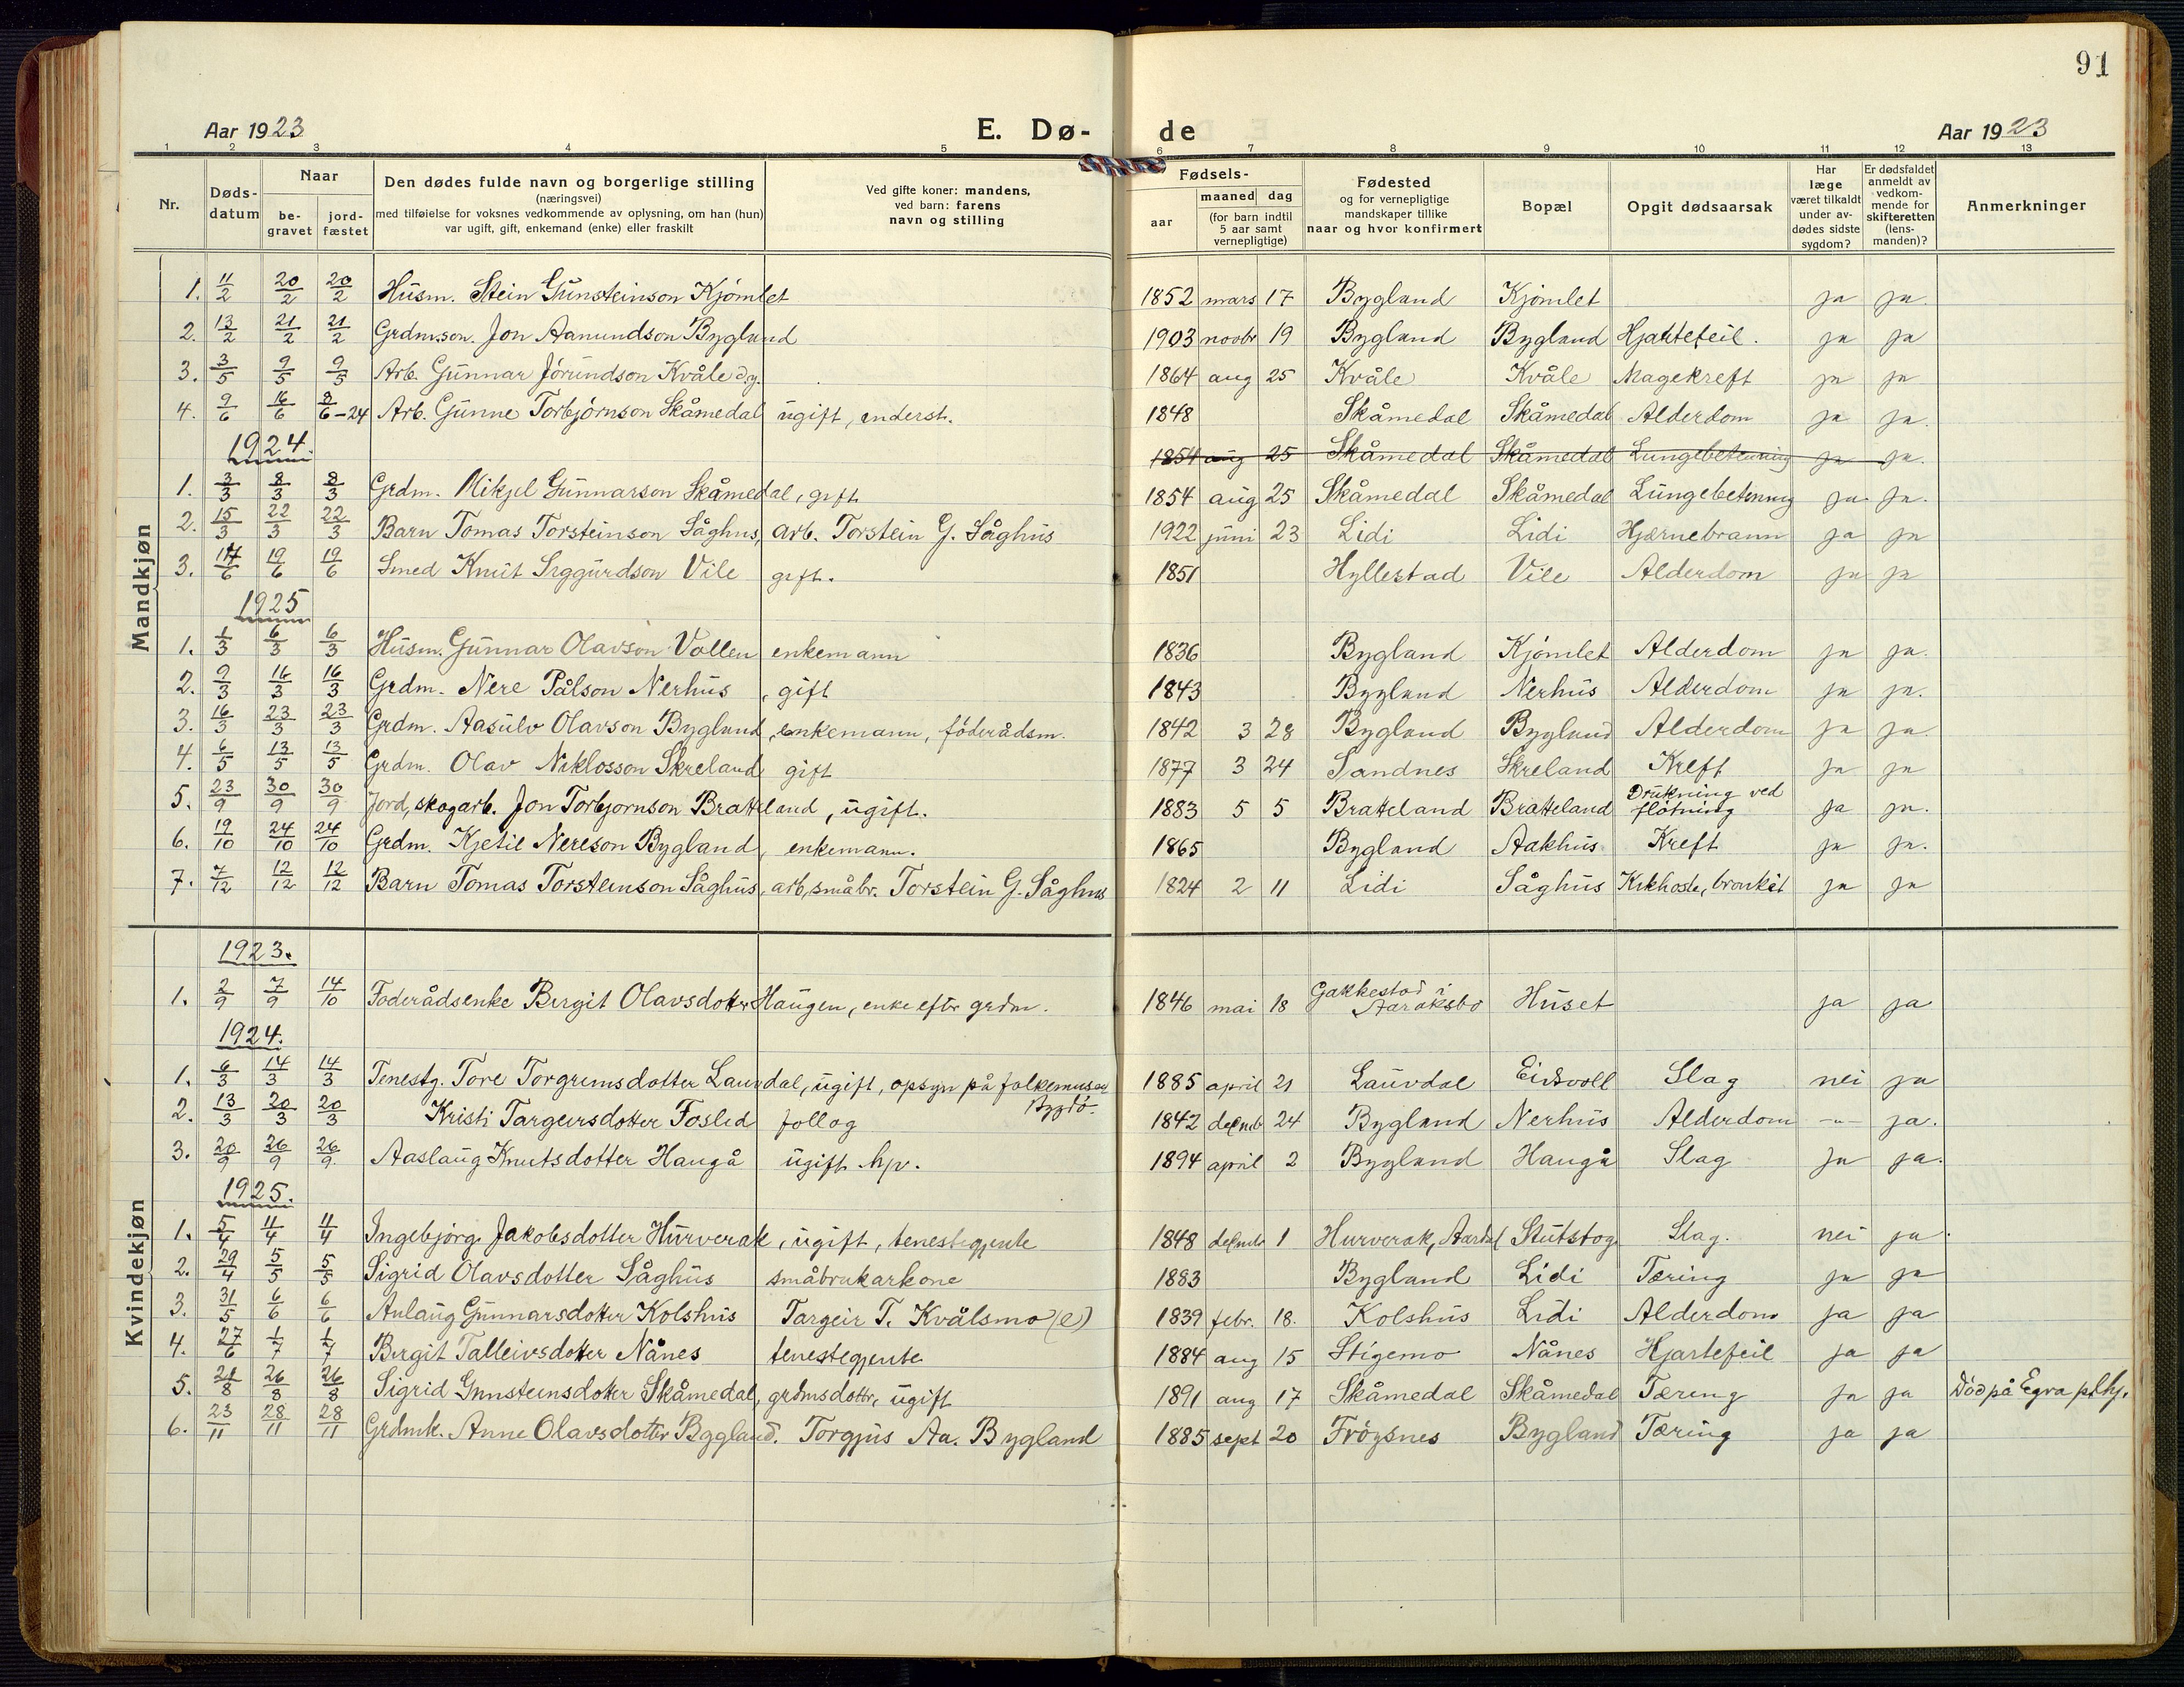 91
Aar 1923 E. Dø- de Aar 1923
1 2 3 4 5 6 7 8 9 10 11 12 13
Nr. Døds-datum Naar be-gravet jord-fæstet Den dødes fulde navn og borgerlige stilling (næringsvei) med tilføielse for voksnes vedkommende av oplysning, om han (hun) var ugift, gift, enkemand (enke) eller fraskilt Ved gifte koner: mandens, ved barn: farens navn og stilling Fødsels- aar maaned dag (for barn indtil 5 aar samt vernepligtige) Fødested og for vernepligtige mandskaper tillike naar og hvor konfirmert Bopæl Opgit dødsaarsak Har læge været tilkaldt under av-dødes sidste sygdom? Er dødsfaldet anmeldt av vedkom-mende for skifteretten (lens-manden)? Anmerkninger
Mandkjøn
1. 11/2 20/2 20/2 Husm. Stein Gunsteinson Kjømlet 1852 mars 17 Bygland Kjømlet ja ja.
2. 13/2 21/2 21/2 Grdm.son. Jon Aanundson Bygland 1903 novbr 19 Bygland Bygland Hjartefeil. ja ja
3. 3/5 9/5 9/5 Arb. Gunnar Jørundson Kvåle 1864 aug 25 Kvåle Kvåle Magekreft ja ja
4. 9/6 16/6 8/6-24 Arb. Gunne Torbjørnson Skåmedal ugift, underst. 1848 Skåmedal Skåmedal Alderdom ja ja.
1924.
1854 aug 25 Skåmedal Skåmedal Lungebetenning ja ja.
1. 3/3 8/3 8/3 Grdm. Mikjel Gunnarson Skåmedal, gift 1854 aug 25 Skåmedal Skåmedal Lungebetenning ja ja.
2. 15/3 22/3 22/3 Barn Tomas Torsteinson Såghus, arb. Torstein G. Såghus 1922 juni 23 Lidi Lidi Hjærnebrann ja ja
3. 14/6 19/6 19/6 Smed Knut Siggurdson Vile gift. 1851 Hyllestad Vile Alderdom ja ja
1925
1. 1/3 6/3 6/3 Husm. Gunnar Olavson Vollen enkemann 1836 Bygland Kjømlet Alderdom ja ja.
2. 9/3 16/3 16/3 Grdm. Nere Pålson Nerhus, gift 1843 Bygland Nerhus Alderdom ja ja.
3. 16/3 23/3 23/3 Grdm. Aasulv Olavson Bygland, enkemann, føderådsm. 1842 3 28 Bygland Bygland Alderdom ja ja
4. 6/5 13/5 13/5 Grdm. Olav Niklosson Skreland gift 1877 3 24 Sandnes Skreland Kreft ja ja
5. 23/9 30/9 30/9 Jord, skogarb. Jon Torbjørnson Bratteland, ugift. 1883 5 5 Bratteland Bratteland Drukning ved fløtning ja ja.
6. 19/10 24/10 24/10 Grdm. Kjetil Nereson Bygland, enkemann. 1865 Bygland Aakhus Kreft ja ja.
7. 7/12 12/12 12/12 Barn Tomas Torsteinson Såghus, arb, småbr. Torstein G. Såghus 1824 2 11 Lidi Såghus Kikhoste, bronkit ja ja
Kvindekjøn
1923.
1. 2/9 7/9 14/10 Føderådsenke Birgit Olavsdotter Haugen, enke eftr grdm. 1846 mai 18 Gakkestad i Aaraksbo Huset ja ja
1924.
1. 6/3 14/3 14/3 Tenestg. Tore Torgrimsdotter Lauvdal, ugift, opsyn på folkemuseet Bygdø. 1885 april 21 Lauvdal Eidsvoll Slag nei ja
2. 13/3 20/3 20/3 Kristi Targeirsdotter Foslid follog 1842 desemb 24 Bygland Nerhus Alderdom -"- ja.
3. 20/9 26/9 26/9. Aaslaug Knutsdotter Haugå ugift hp. 1894 april 2 Bygland Haugå Slag ja ja.
1925.
1. 5/4 11/4 11/4 Ingebjørg Jakobsdotter Hurverak, ugift, tenestegjente 1848 desemb 1 Hurverak, Aardal Stutstog Slag. nei ja.
2. 29/4 5/5 5/5 Sigrid Olavsdotter Såghus småbrukarkone 1883 Bygland Lidi Tæring ja ja
3. 31/5 6/6 6/6 Aulaug Gunnarsdotter Kolshus Targeir T. Kvålsmo (e) 1839 febr. 18. Kolshus Lidi Alderdom ja ja
4. 27/6 1/7 1/7 Birgit Talleivsdotter Nånes tenestegjente 1884 aug 15 Stigemo Nånes Hjartefeil ja ja
5. 21/8 26/8 26/8 Sigrid Gunsteinsdotter Skåmedal, grdmsdottr, ugift 1891 aug 17 Skåmedal Skåmedal Tæring ja ja Død på Egra plhj.
6. 23/11 28/11 28/11 Grdmk. Anne Olavsdotter Bygland. Torgjus Aa. Bygland 1885 sept 20 Frøysnes Bygland Tæring ja ja